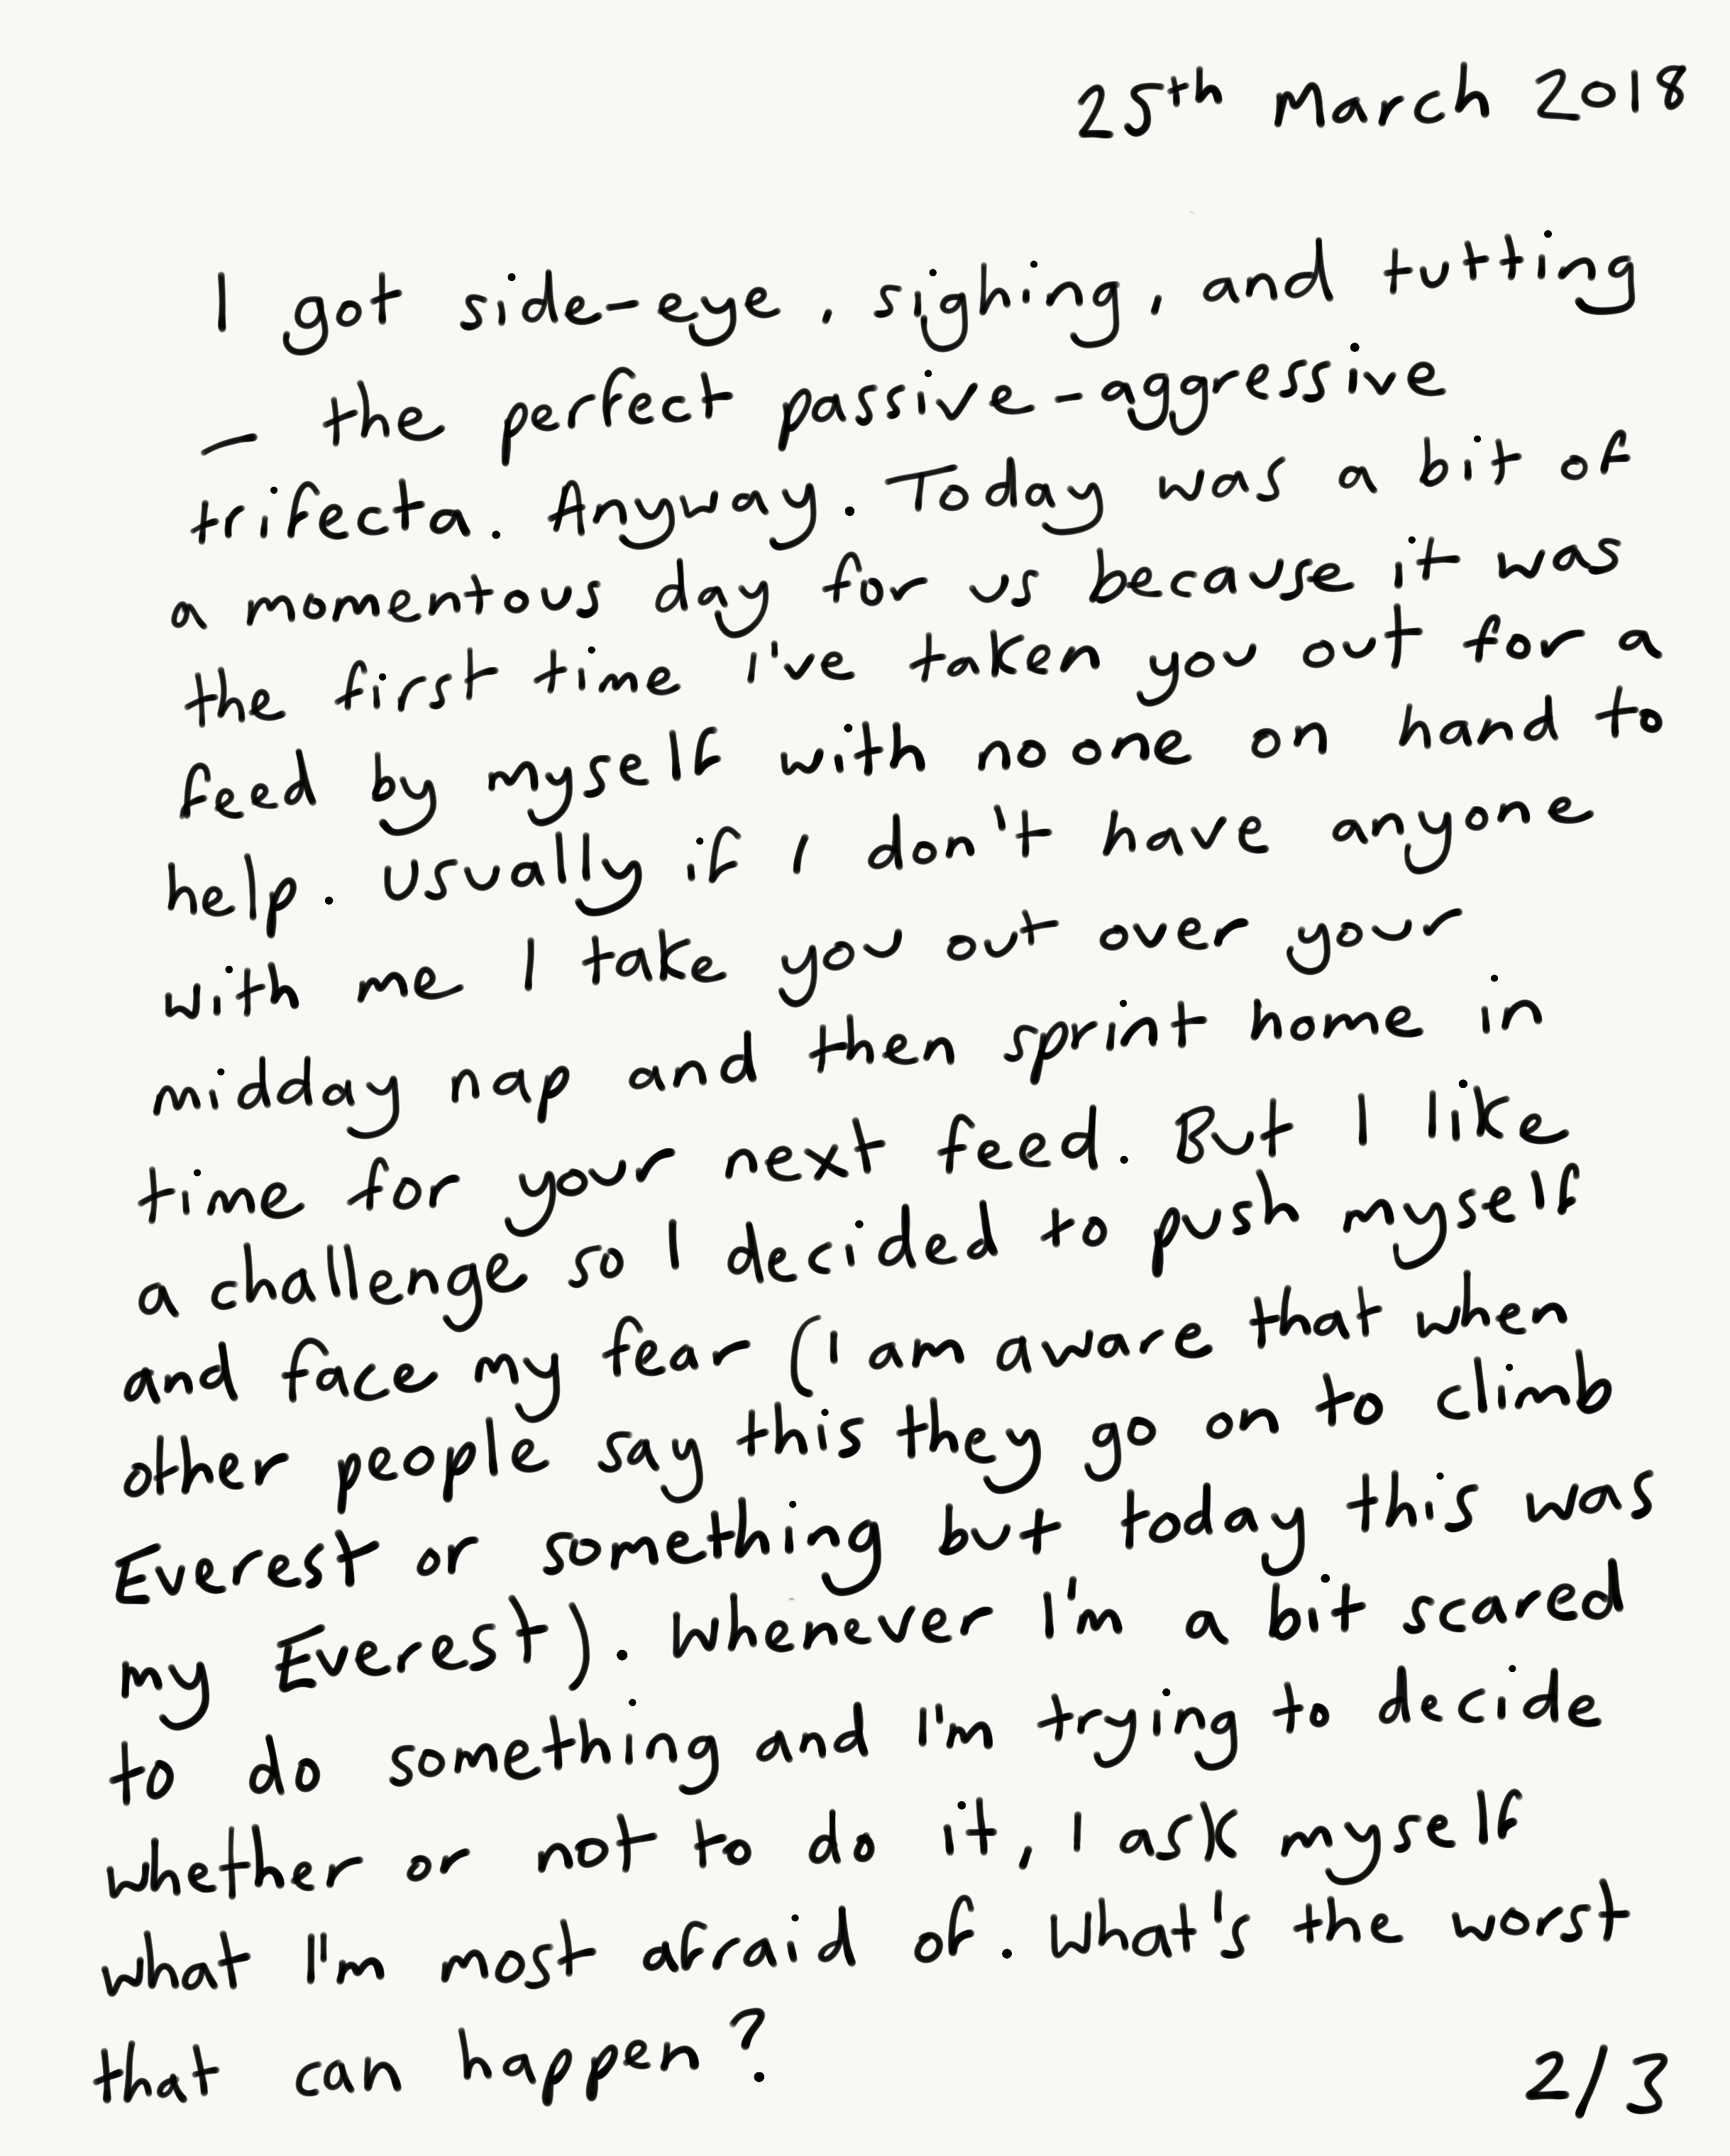 25th March 2018
I got side-eye, sighing, and tutting
– the perfect passive-aggressive
trifecta. Anyway. Today was a bit of
a momentous day for us because it was
the first time I've taken you out for a
feed by myself with no one on hand to
help. Usually if I don't have anyone
with me I take you out over your
midday nap and then sprint home in
time for your next feed. But I like
a challenge so I decided to push myself
and face my fear (I am aware that when
other people say this they go on to climb
Everest or something but today this was
my Everest). Whenever I'm a bit scared
to do something and I'm trying to decide
whether or not to do it, I ask myself
what I'm most afraid of. What's the worst
that can happen?
2/3